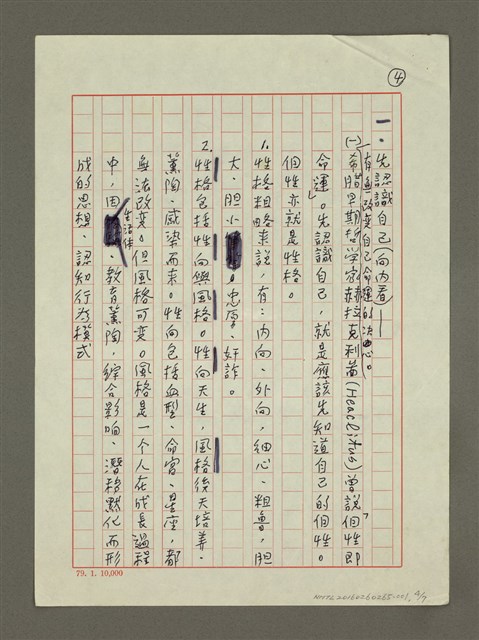 ④
一、先認識自己(向內看)——
有無改變自己命運的決心。
(一)希臘早期哲學家赫拉克利圖(Heaclitus)曾說「個性即
命運」。先認識自己，就是應該先知道自己的個性。
個性亦就是性格。
1.性格粗略來說，有：內向、外向，細心、粗魯，膽
大、膽小。忠厚、奸詐。
2.性格包括性向與風格。性向天生，風格後天培養、
薰陶、感染而來。性向包括血型、命宮、星座，都
無法改變。但風格可變。風格是一個人在成長過程
中，因生活、教育薰陶，綜合影响、潛移默化而形
成的思想、認知行為模式
79. 1. 10,000